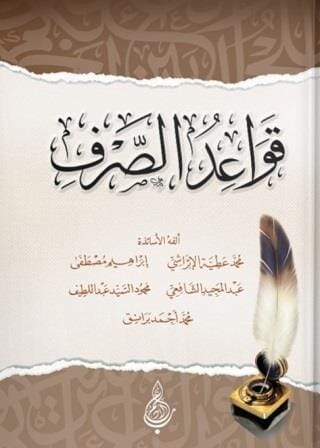 قَوَاعِدُ الصَّرْفِ
ألفه الأساتذة
محمد عطية الإبراشي إبراهيم مصطفى
عبد المجيد الشافعي محمود السيد عبد اللطيف
محمد أحمد برانق